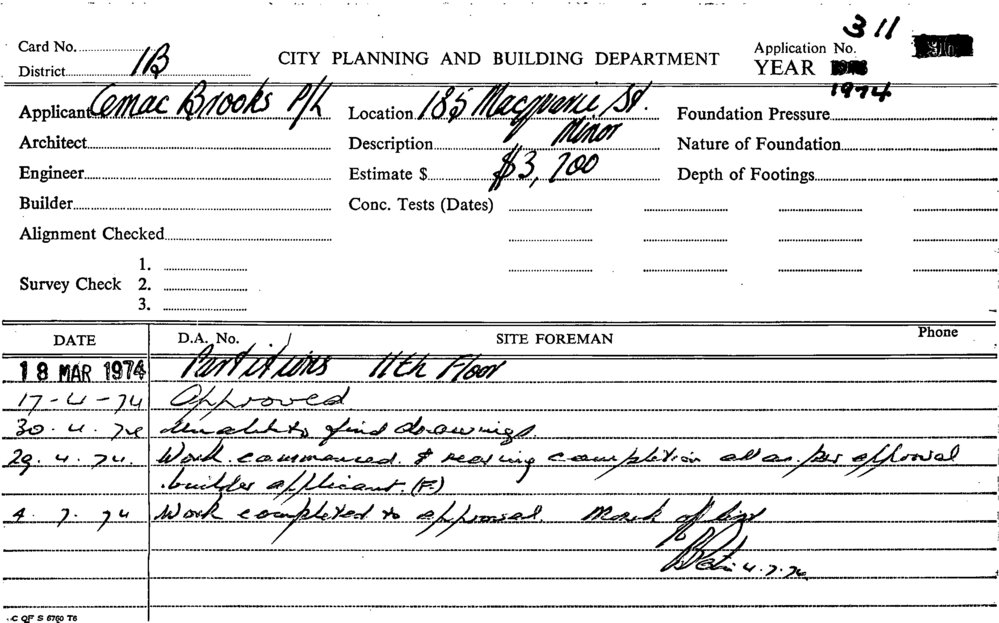 311
Card No. 1B CITY PLANNING AND BUILDING DEPARTMENT Application No.
District YEAR 1974
Applicant Cemac Brooks P/L Location 185 Macquarie St. Foundation Pressure
Architect Description Minor Nature of Foundation
Engineer Estimate $ $3,700 Depth of Footings
Builder Conc. Tests (Dates)
Alignment Checked
1.
Survey Check 2.
3.
DATE D.A. No. SITE FOREMAN Phone
18 MAR 1974 Partitions 11th Floor
17-4-74 Approved
30.4.74 Unable to find drawings.
29.4.74. Work commenced & nearing completion all as per approval
builder applicant. (F.)
4.7.74 Work completed to approval. Mark off
4.7.74
C OF S 6760 T6